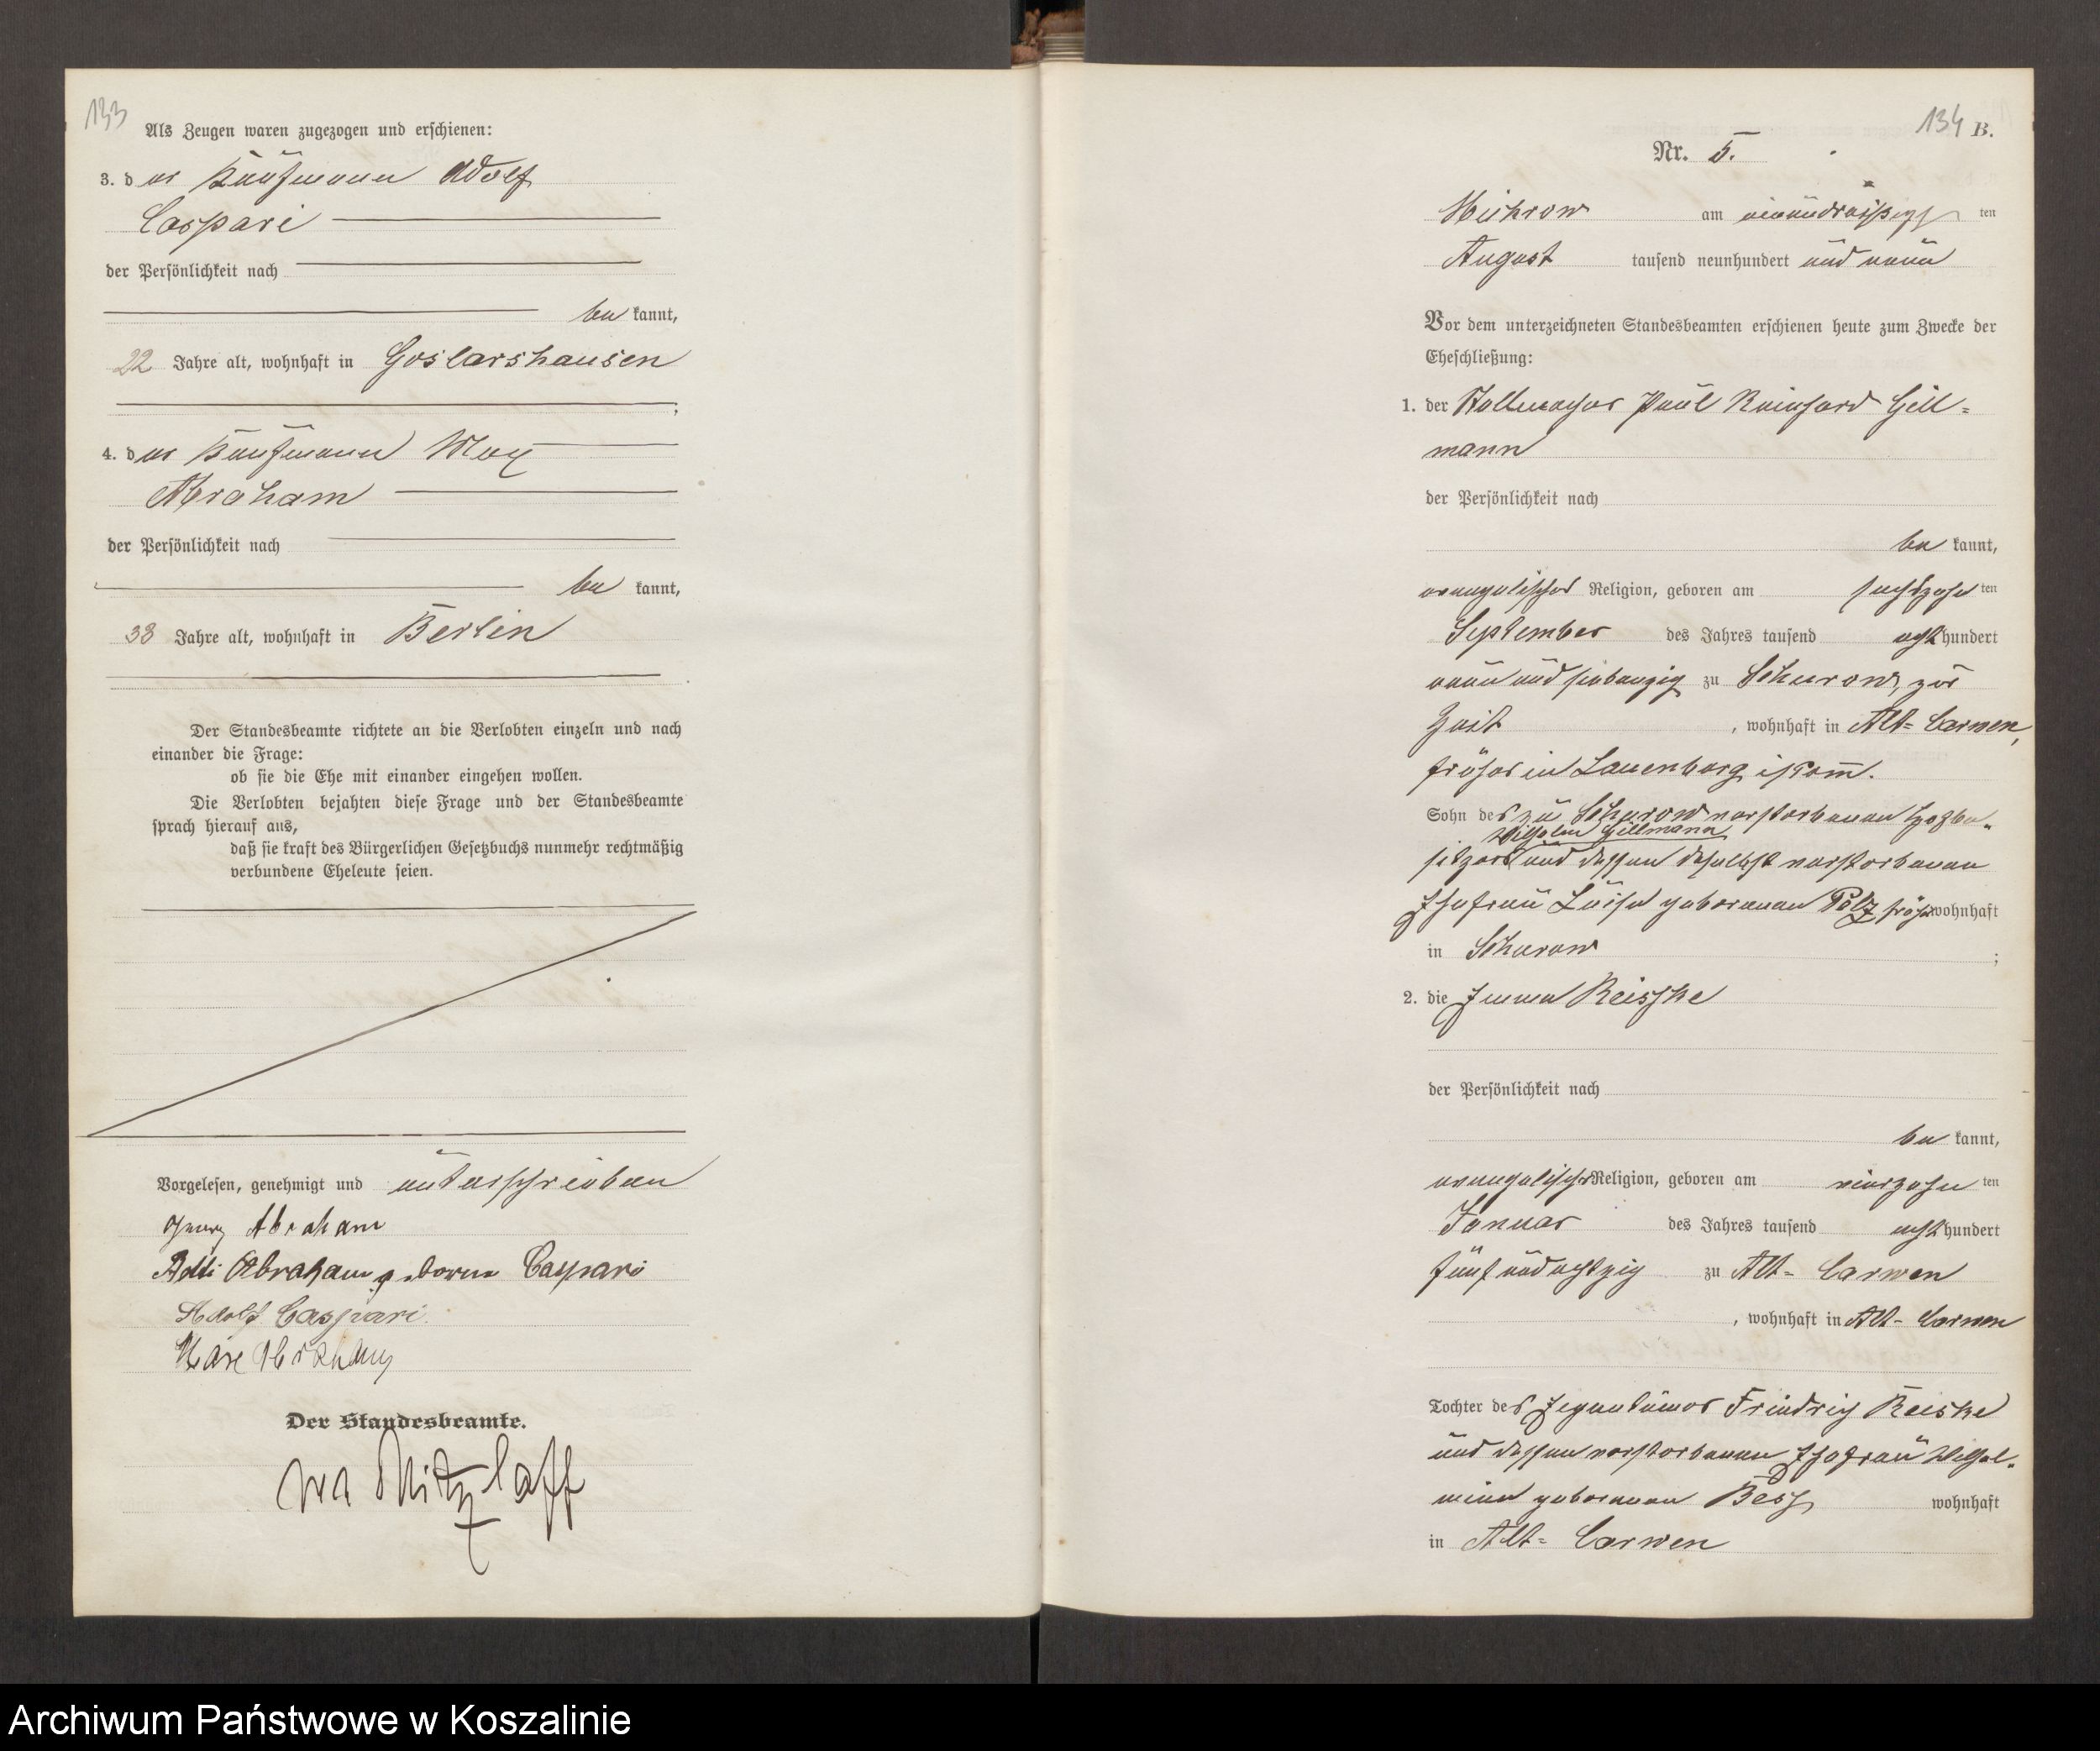 133
Als Zeugen waren zugezogen und erschienen:
3. der Kaufmann Adolf
Caspari
der Persönlichkeit nach
bekannt,
22 Jahre alt, wohnhaft in Goslarshausen
;
4. der Kaufmann Max
Abraham
der Persönlichkeit nach
bekannt,
38 Jahre alt, wohnhaft in Berlin
.
Der Standesbeamte richtete an die Verlobten einzeln und nach
einander die Frage:
ob sie die Ehe mit einander eingehen wollen.
Die Verlobten bejahten diese Frage und der Standesbeamte
sprach hierauf aus,
daß sie kraft des Bürgerlichen Gesetzbuchs nunmehr rechtmäßig
verbundene Eheleute seien.
Vorgelesen, genehmigt und unterschrieben
Abraham
Abraham geborene Caspari
Adolf Caspari.
Max Abraham
Der Standesbeamte.
134 B.
Nr. 5.
Mickrow am einunddreißigsten
August tausend neunhundert und neun
Vor dem unterzeichneten Standesbeamten erschienen heute zum Zwecke der
Eheschließung:
1. der Stellmacher Paul Reinhard Gill=
mann
der Persönlichkeit nach
bekannt,
evangelischer Religion, geboren am sechszehnten
September des Jahres tausend achthundert
neun und siebenzig zu Schurow, zur
Zeit, wohnhaft in Alt= Carwen,
früher in Lauenburg i/Pomm.
Sohn des zu Schurow verstorbenen
Wilhelm Gillmann
sitzers und dessen daselbst verstorbenen
Ehefrau Luise geborenen Polz früher wohnhaft
in Schurow ;
2. die Emma Reischke
der Persönlichkeit nach
bekannt,
evangelischer Religion, geboren am vierzehnten
Januar des Jahres tausend achthundert
fünf und achtzig zu Alt= Carwen
, wohnhaft in Alt= Carwen
Tochter des Eigentümers Friedrich Reischke
und dessen verstorbenen Ehefrau Wilhel=
mine geborenen wohnhaft
in Alt= Carwen
Archiwum Państwowe w Koszalinie